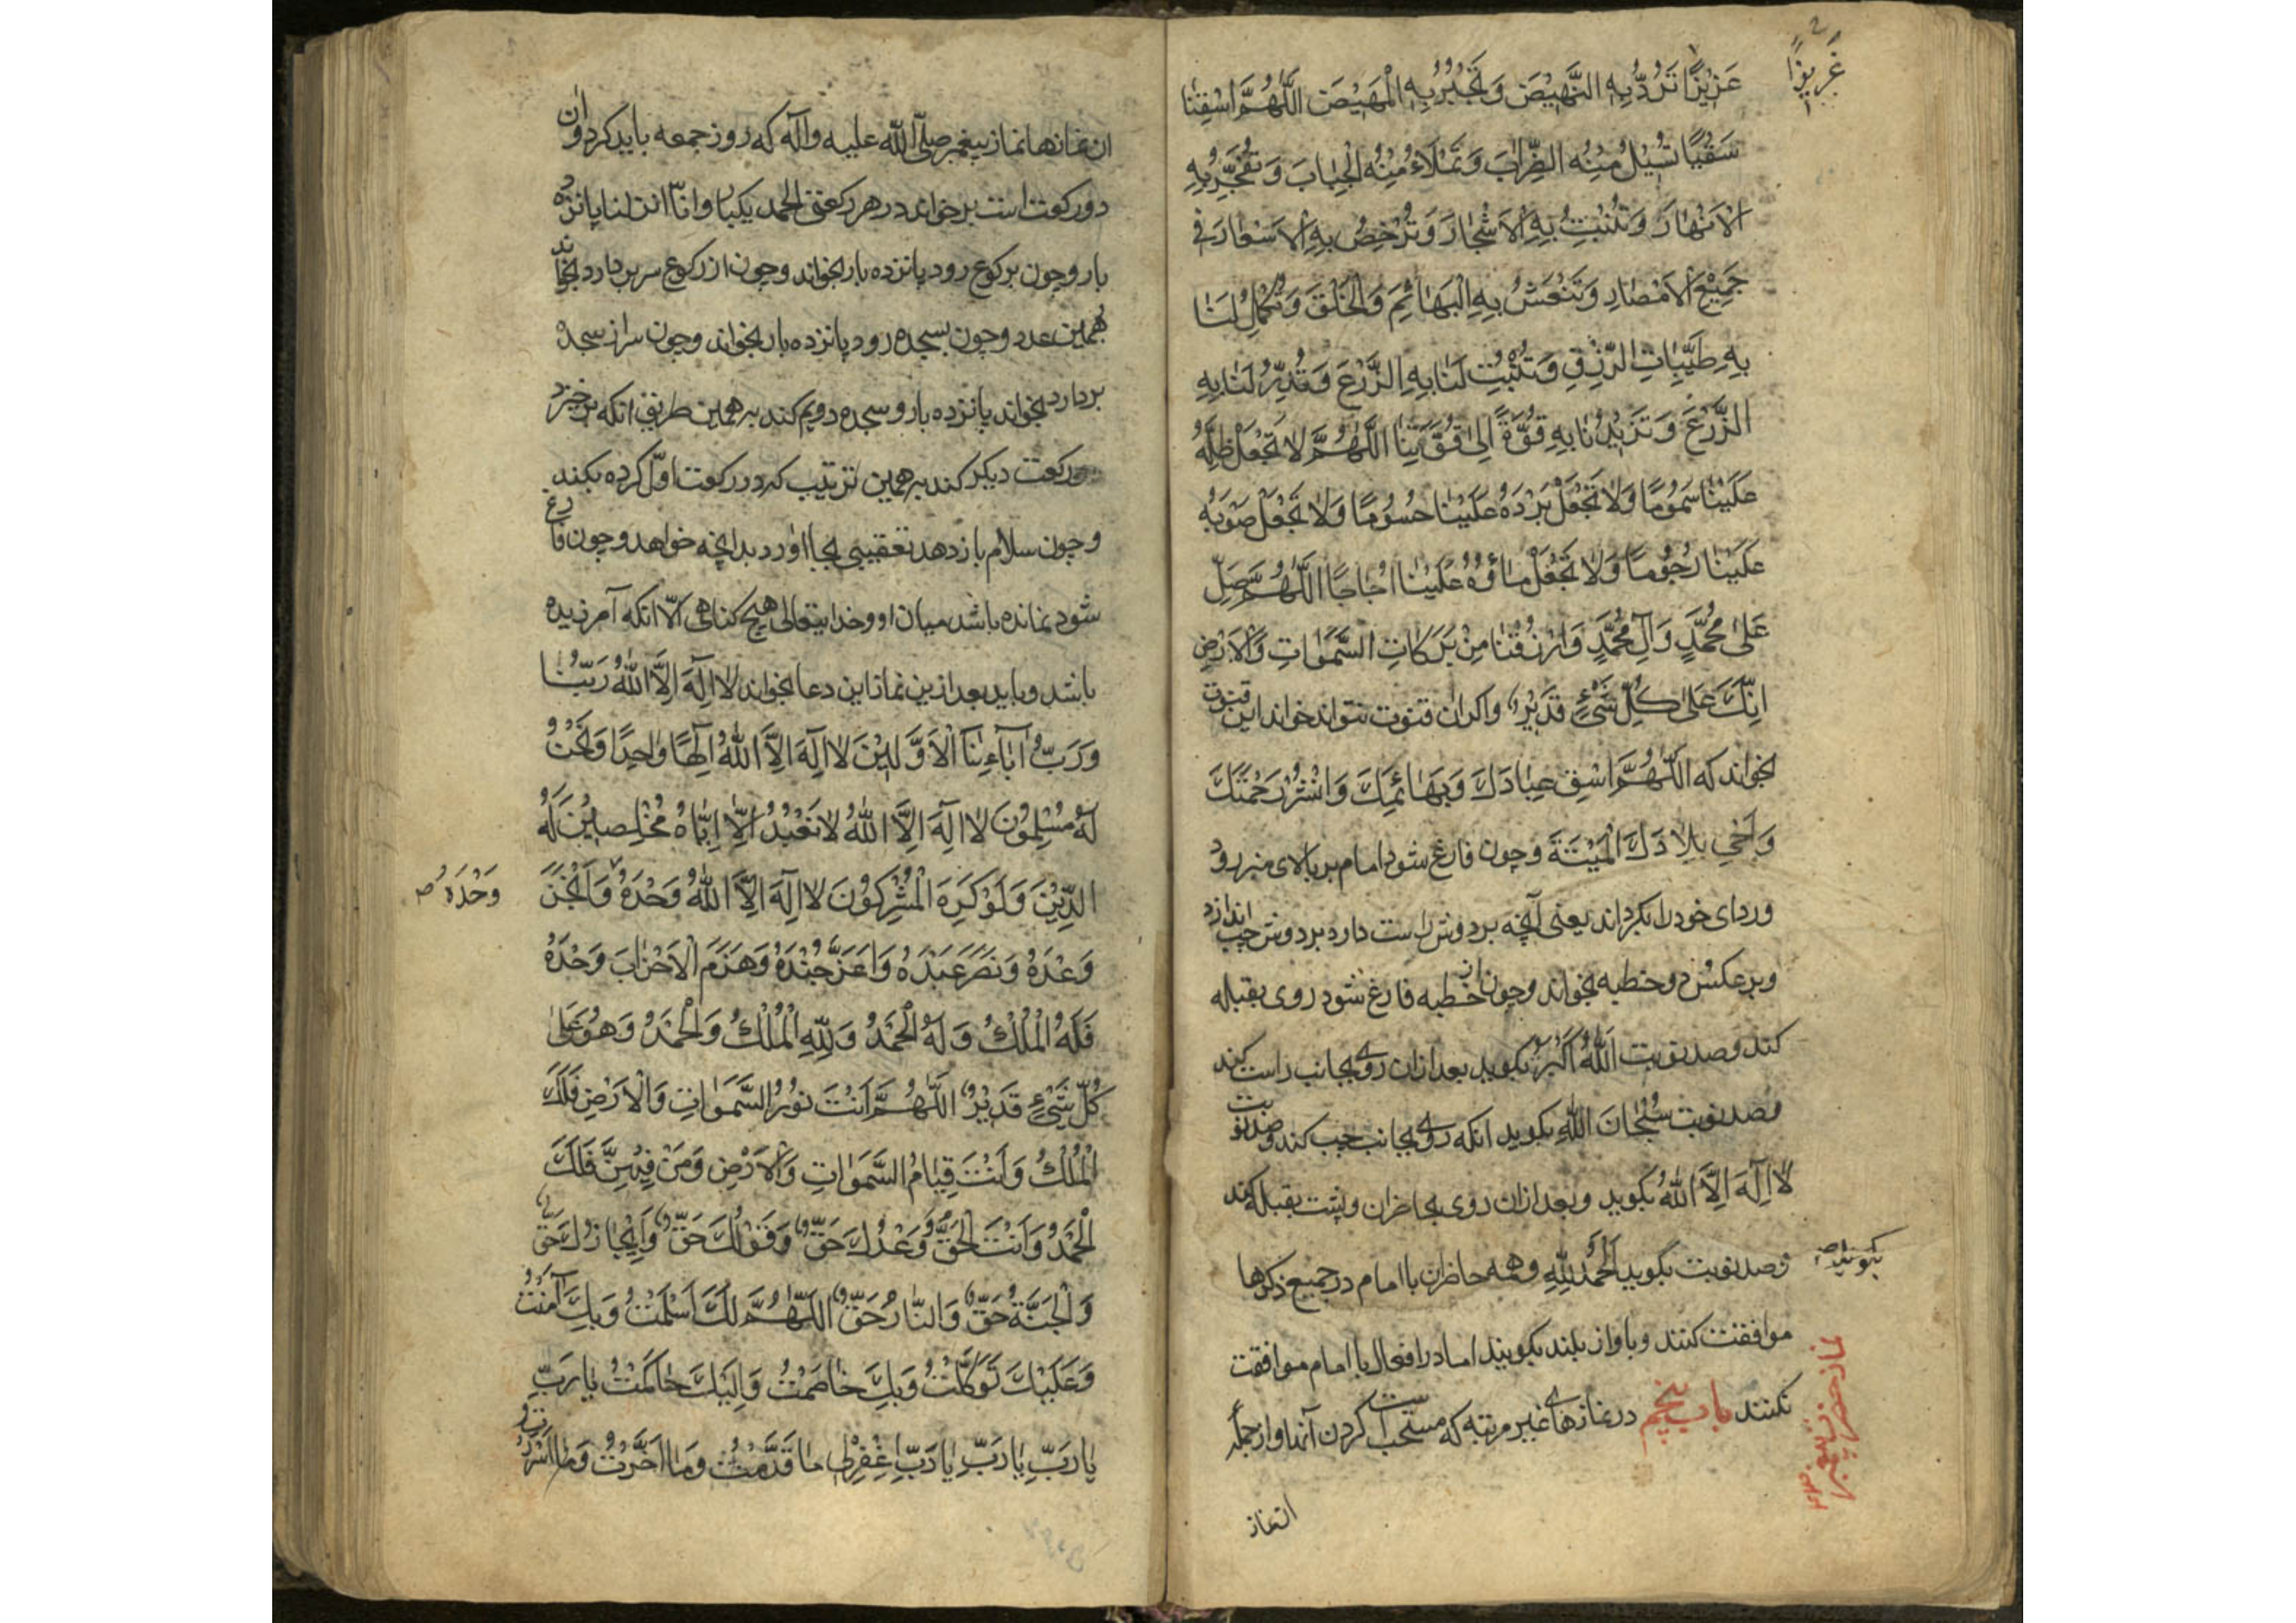 غَزِيْرًا
عَزِيْزًا تَرُدُّ بِهِ النَّهِيْضَ وَتَجْبُرُ بِهِ الْمَهِيْضَ اَللّٰهُمَّ اسْقِنَا
سَقْيًا تُسِيْلُ مِنْهُ الظِّرَابَ وَتَمْلَاءُ مِنْهُ الْجِبَابَ وَتُفَجِّرُ بِهِ
الْاَنْهَارَ وَتُنْبِتُ بِهِ الْاَشْجَارَ وَتُرْخِصُ بِهِ الْاَسْعَارَ فِى
جَمِيْعِ الْاَمْصَارِ وَتَنْعَشُ بِهِ الْبَهَائِمَ وَالْخَلْقَ وَتُكْمِلُ لَنَا
بِهِ طَيِّبَاتِ الرِّزْقِ وَتُنْبِتُ لَنَا بِهِ الزَّرْعَ وَتُدِرُّ لَنَا بِهِ
الزَّرْعَ وَتَزِيْدُنَا بِهِ قُوَّةً اِلٰى قُوَّتِنَا اَللّٰهُمَّ لَا تَجْعَلْ ظِلَّهُ
عَلَيْنَا سَمُوْمًا وَلَا تَجْعَلْ بَرْدَهُ عَلَيْنَا حُسُوْمًا وَلَا تَجْعَلْ صَوْبَهُ
عَلَيْنَا رُجُوْمًا وَلَا تَجْعَلْ مَاؤَهُ عَلَيْنَا اُجَاجًا اَللّٰهُمَّ صَلِّ
عَلٰى مُحَمَّدٍ وَآلِ مُحَمَّدٍ وَارْزُقْنَا مِنْ بَرَكَاتِ السَّمٰوَاتِ وَالْاَرْضِ
اِنَّكَ عَلٰى كُلِّ شَىْءٍ قَدِيْرٌ واكر ان قنوت نتواند خواند اين قنوت
بخواند كه اَللّٰهُمَّ اسْقِ عِبَادَكَ وَبَهَائِمَكَ وَانْشُرْ رَحْمَتَكَ
وَاَحْىِ بِلَادَكَ الْمَيْتَةَ وچون فارغ شود امام بر بالاى منبر رود
ورداى خود را بكرداند يعنى آنچه بر دوش راست دارد بر دوش چپ اندازد
وبرعكس و دو خطبه بخواند وچون از خطبه فارغ شود روى بقبله
كند وصد نوبت اَللّٰهُ اَكْبَرُ بكويد بعد ازان روى بجانب راست كند
وصد نوبت سُبْحَانَ اللّٰهِ بكويد انكه روى بجانب چپ كند وصد نوبت
لَا اِلٰهَ اِلَّا اللّٰهُ بكويد وبعد ازان روى بحاضران وپشت بقبله كند
وصد نوبت بگويد اَلْحَمْدُ لِلّٰهِ وهمه حاضران با امام در جميع ذكرها
بكويند
موافقت كنند وباواز بلند بكويند اما در افعال با امام موافقت
نكنند باب پنجم در نمازهاى غير مرتبه كه مستحب است كردن آنها واز جمله
نماز حضرت پيغمبر
ان نماز
ان نمازها نماز پيغمبر صلّى الله عليه وآله كه روز جمعه بايد كرد وان
دو ركعت است برخواند در هر ركعتى الحمد يكبار وانّا انزلنا پانزده
بار وچون بركوع رود پانزده بار بخواند وچون از ركوع سر بردارد بخواند
بهمين عدد وچون بسجده رود پانزده بار بخواند وچون سر از سجده
بردارد بخواند پانزده بار وسجده دويم كند بر همين طريق انكه برخيزد
وركعت ديكر كند بر همين ترتيب كه در ركعت اوّل كرده بكند
وچون سلام باز دهد تعقيبى بجا اورد بدانچه خواهد وچون فارغ
شود نمانده باشد ميان او وخدايتعالى هيچ كناهى الّا انكه آمرزيده
باشد وبايد بعد ازين نماز اين دعا بخواند لَا اِلٰهَ اِلَّا اللّٰهُ رَبُّنَا
وَرَبُّ آبَاءِنَا الْاَوَّلِيْنَ لَا اِلٰهَ اِلَّا اللّٰهُ اِلٰهًا وَاحِدًا وَنَحْنُ
لَهُ مُسْلِمُوْنَ لَا اِلٰهَ اِلَّا اللّٰهُ لَا نَعْبُدُ اِلَّا اِيَّاهُ مُخْلِصِيْنَ لَهُ
الدِّيْنَ وَلَوْ كَرِهَ الْمُشْرِكُوْنَ لَا اِلٰهَ اِلَّا اللّٰهُ وَحْدَهُ وَاَنْجَزَ
وَحْدَهُ
وَعْدَهُ وَنَصَرَ عَبْدَهُ وَاَعَزَّ جُنْدَهُ وَهَزَمَ الْاَحْزَابَ وَحْدَهُ
فَلَهُ الْمُلْكُ وَلَهُ الْحَمْدُ وَلِلّٰهِ الْمُلْكُ وَالْحَمْدُ وَهُوَ عَلٰى
كُلِّ شَىْءٍ قَدِيْرٌ اَللّٰهُمَّ اَنْتَ نُوْرُ السَّمٰوَاتِ وَالْاَرْضِ فَلَكَ
الْمُلْكُ وَاَنْتَ قِيَامُ السَّمٰوَاتِ وَالْاَرْضِ وَمَنْ فِيْهِنَّ فَلَكَ
الْحَمْدُ وَاَنْتَ الْحَقُّ وَوَعْدُكَ حَقٌّ وَقَوْلُكَ حَقٌّ وَاِنْجَازُكَ حَقٌّ
وَالْجَنَّةُ حَقٌّ وَالنَّارُ حَقٌّ اَللّٰهُمَّ لَكَ اَسْلَمْتُ وَبِكَ آمَنْتُ
وَعَلَيْكَ تَوَكَّلْتُ وَبِكَ خَاصَمْتُ وَاِلَيْكَ حَاكَمْتُ يَا رَبِّ
يَا رَبِّ يَا رَبِّ يَا رَبِّ اِغْفِرْ لِى مَا قَدَّمْتُ وَمَا اَخَّرْتُ وَمَا اَسْرَرْتُ